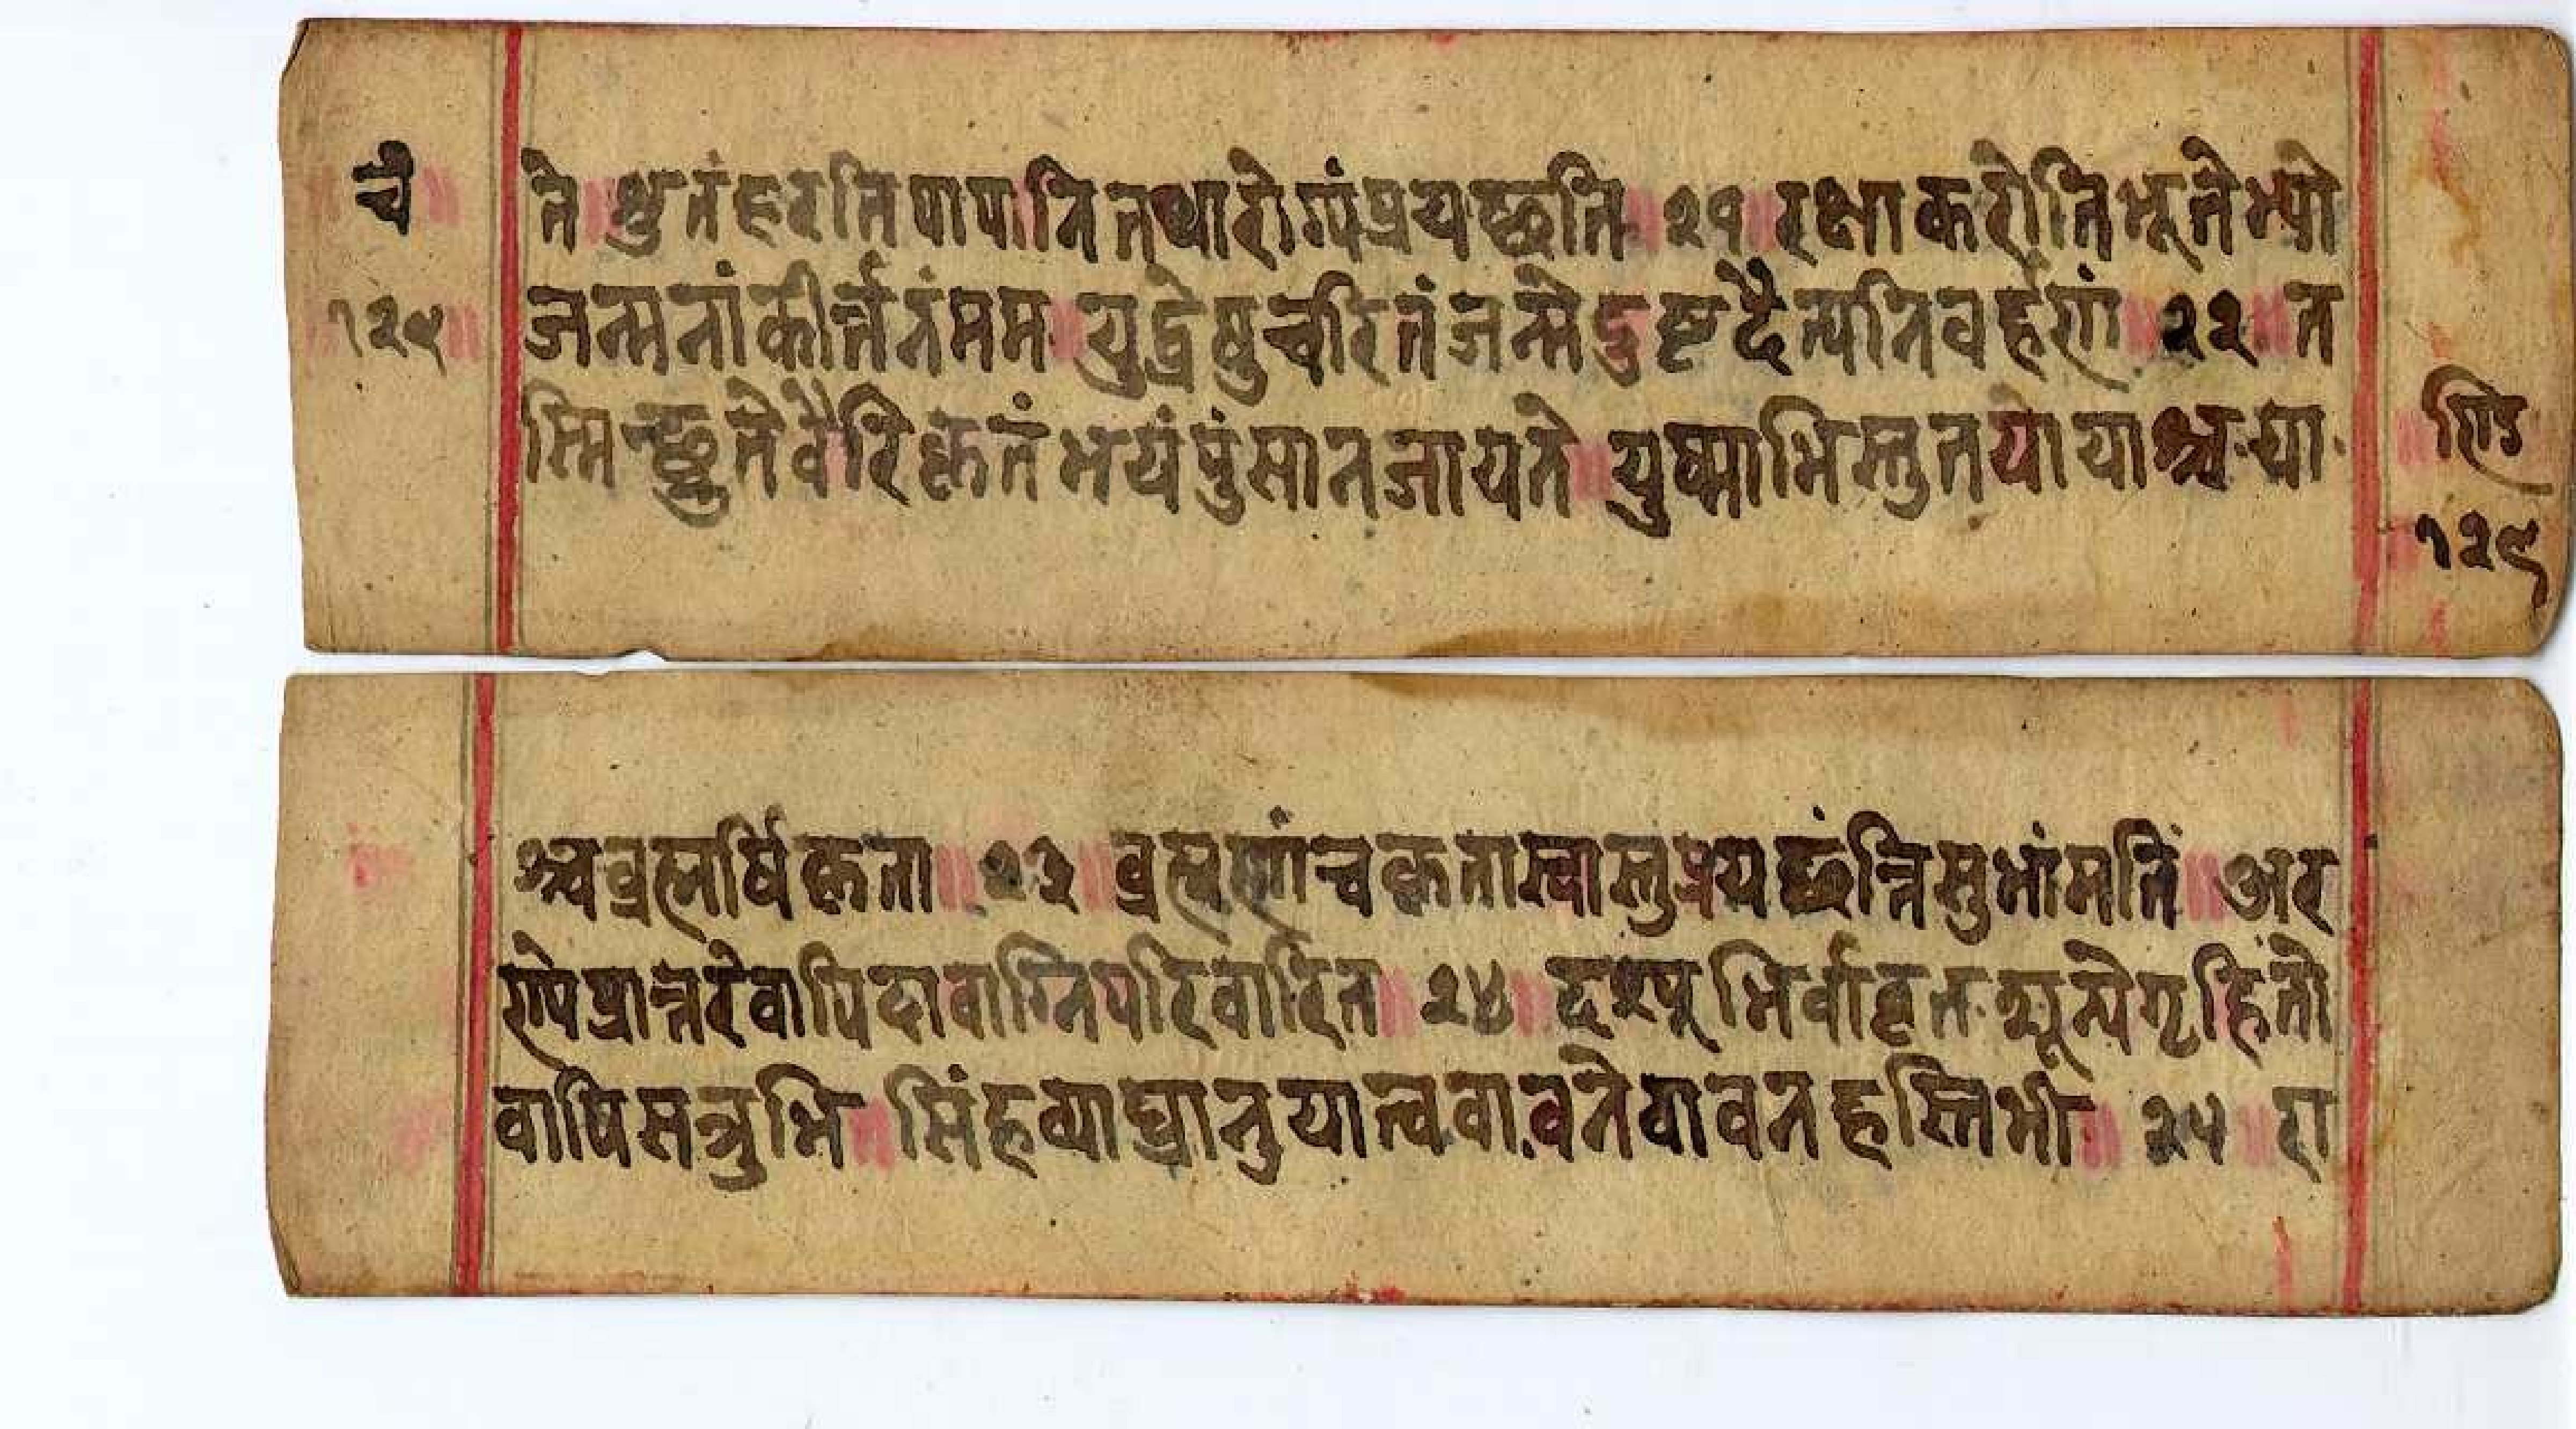 चे
१२९
ते॥ श्रुतं हरति पापानि तथारोग्यं प्रयच्छति॥ २१॥ रक्षा करोति भूतेभ्यो
जन्मनां कीर्त्तनं मम॥ युद्धेषु चरितं जन्मे दुष्टदैत्यनिवर्हणां॥ २२॥ त
स्मिन्च्छ्रुते वैरिकृतं भयं पुंसा न जायते॥ युष्माभि स्तुतयो याश्च या
ण्डि
१२९
श्च व्रह्मर्षिकृता॥ २३॥ व्रह्मणां च कृतास्तास्तु प्रयच्छंन्ति सुभां मतिं॥ अर
ण्ये प्रान्तरे वापि दावाग्निपरिवारित॥ २४॥ दश्पूभिर्वा वृत शून्ये गृहितो
वापि सत्रुभि॥ सिंहव्याघ्रानुयात्ववा वने वा वनहस्तिभी॥ २५॥ रा